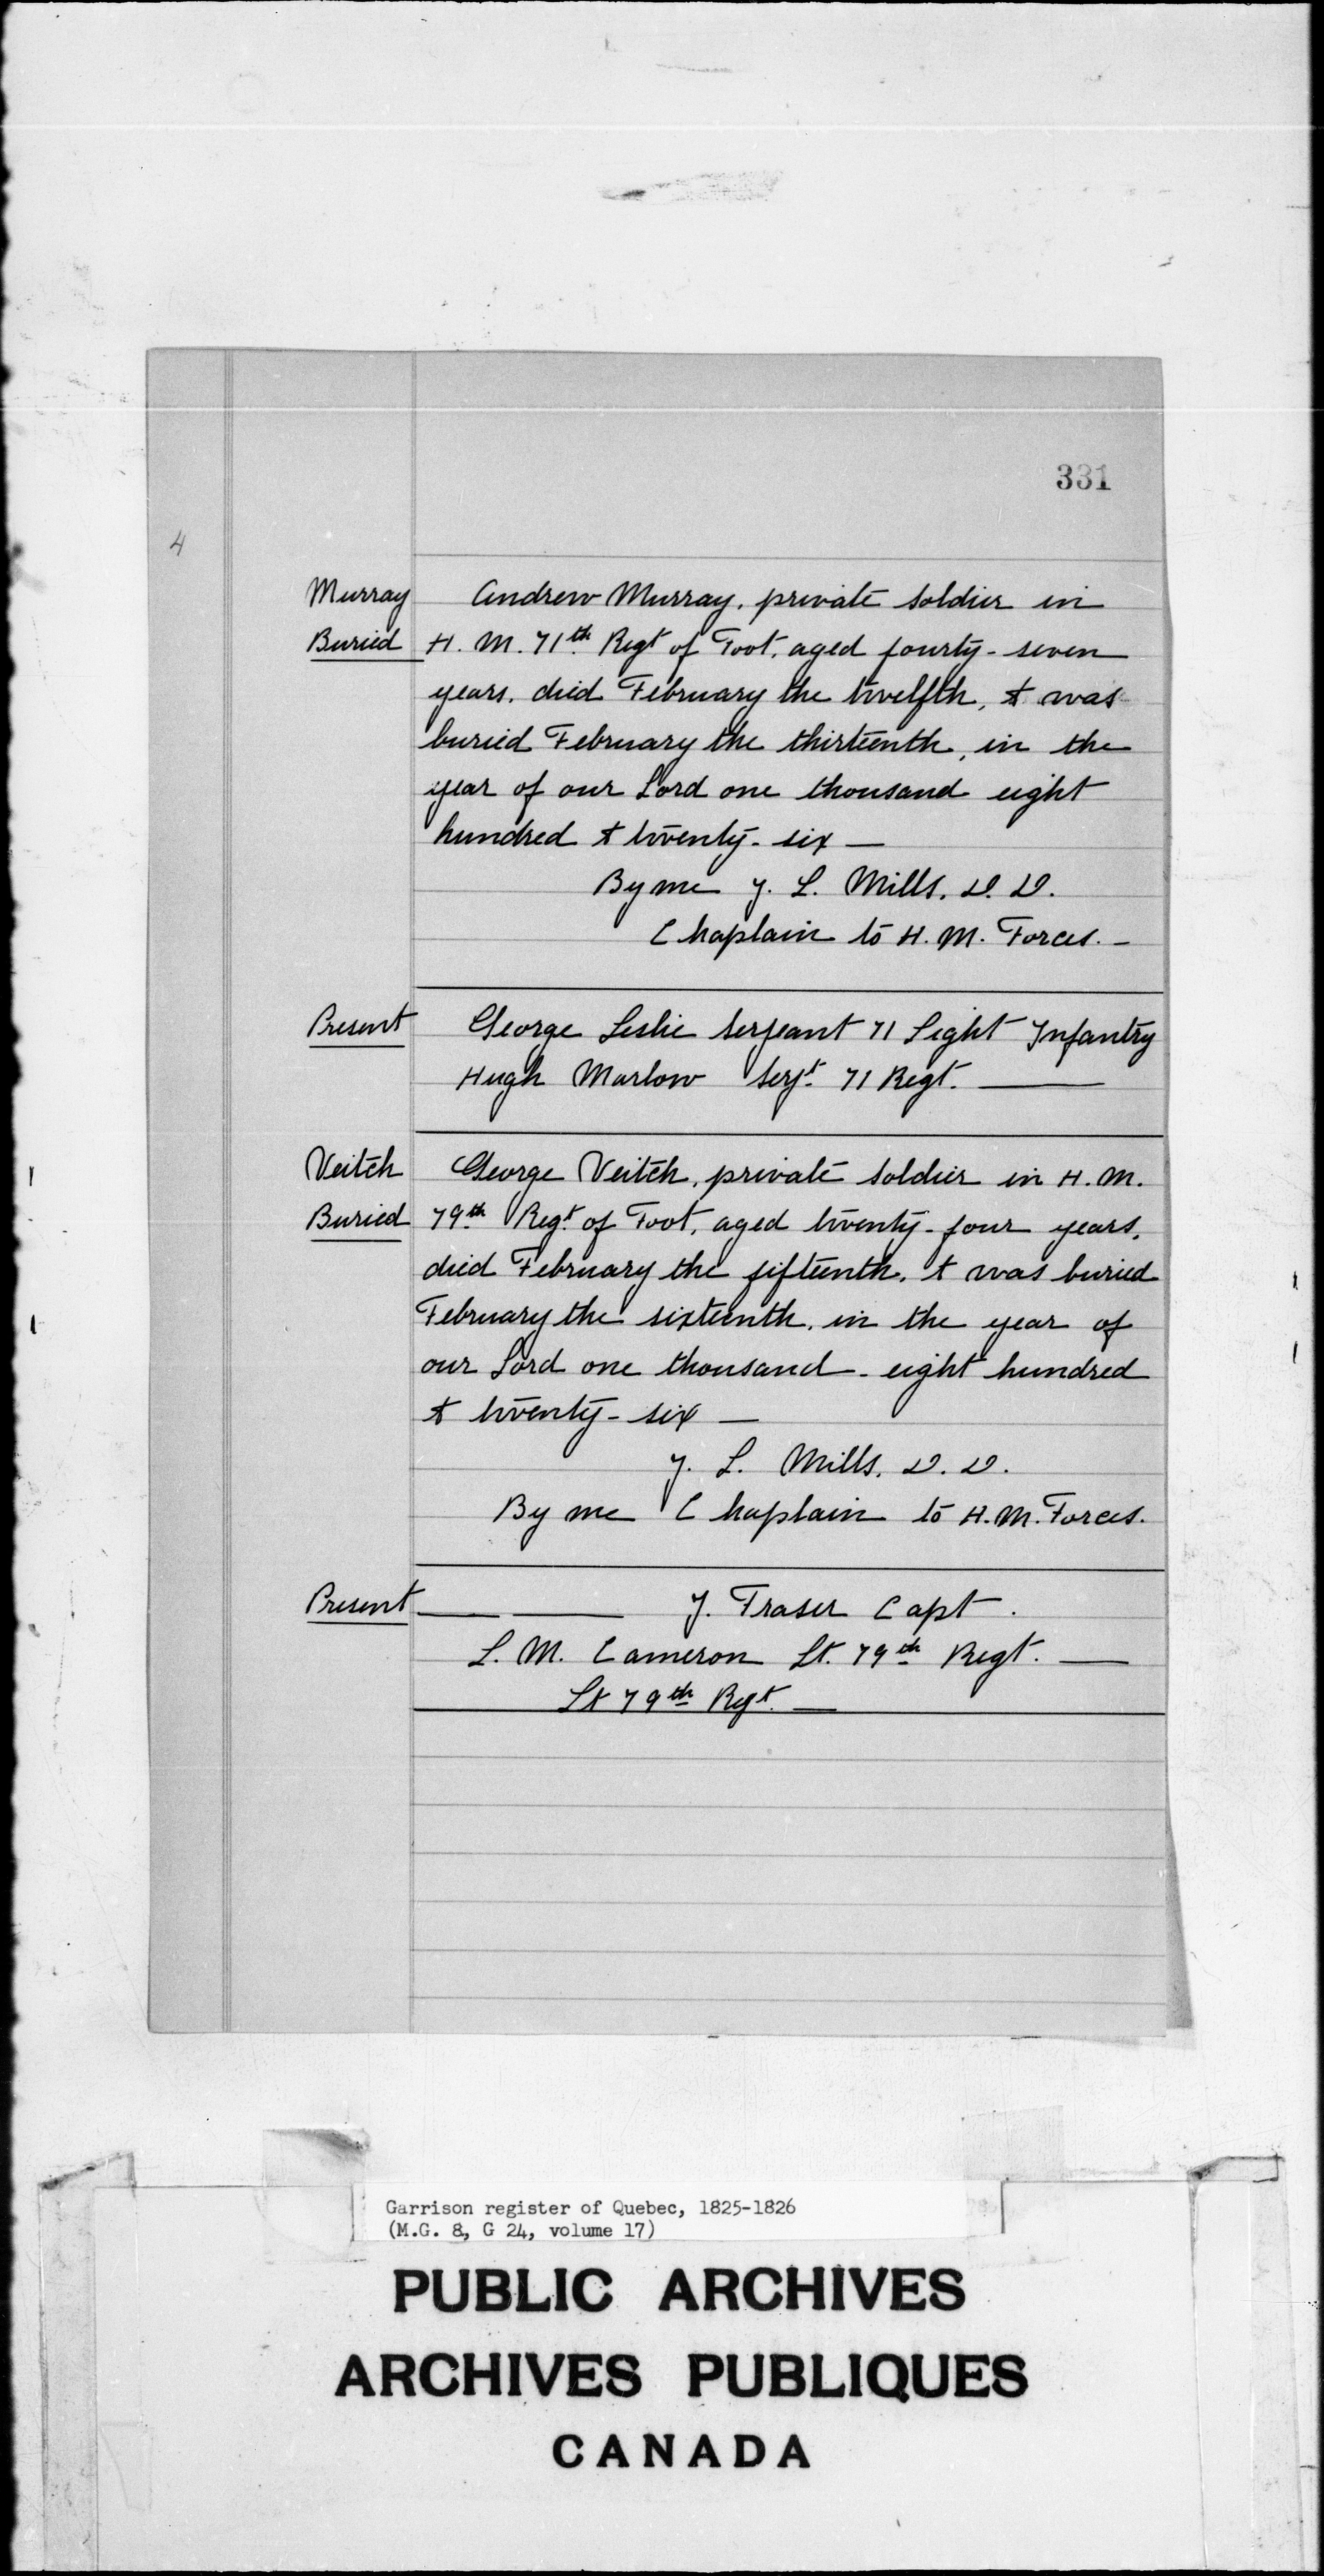 331
4
Murray Andrew Murray, private soldier in
Buried H. M. 71th Regt of Foot, aged fourty-seven
years, died February the twelfth, & was
buried February the thirteenth, in the
year of our Lord one thousand eight
hundred & twenty-six —
By me J. L. Mills, D. D.
Chaplain to H. M. Forces. —
Present George Leslie Serjeant 71 Light Infantry
Hugh Marlow Serjt 71 Regt. —
Veitch George Veitch, private soldier in H. M.
Buried 79th Regt of Foot, aged twenty-four years,
died February the fifteenth, & was buried
February the sixteenth, in the year of
our Lord one thousand - eight hundred
& twenty-six —
J. L. Mills, D. D.
By me Chaplain to H. M. Forces.
Present — — J. Fraser Capt.
L. M. Cameron Lt. 79th Regt. —
Lt 79th Regt. —
Garrison register of Quebec, 1825-1826
(M.G. 8, G 24, volume 17)
PUBLIC ARCHIVES
ARCHIVES PUBLIQUES
CANADA